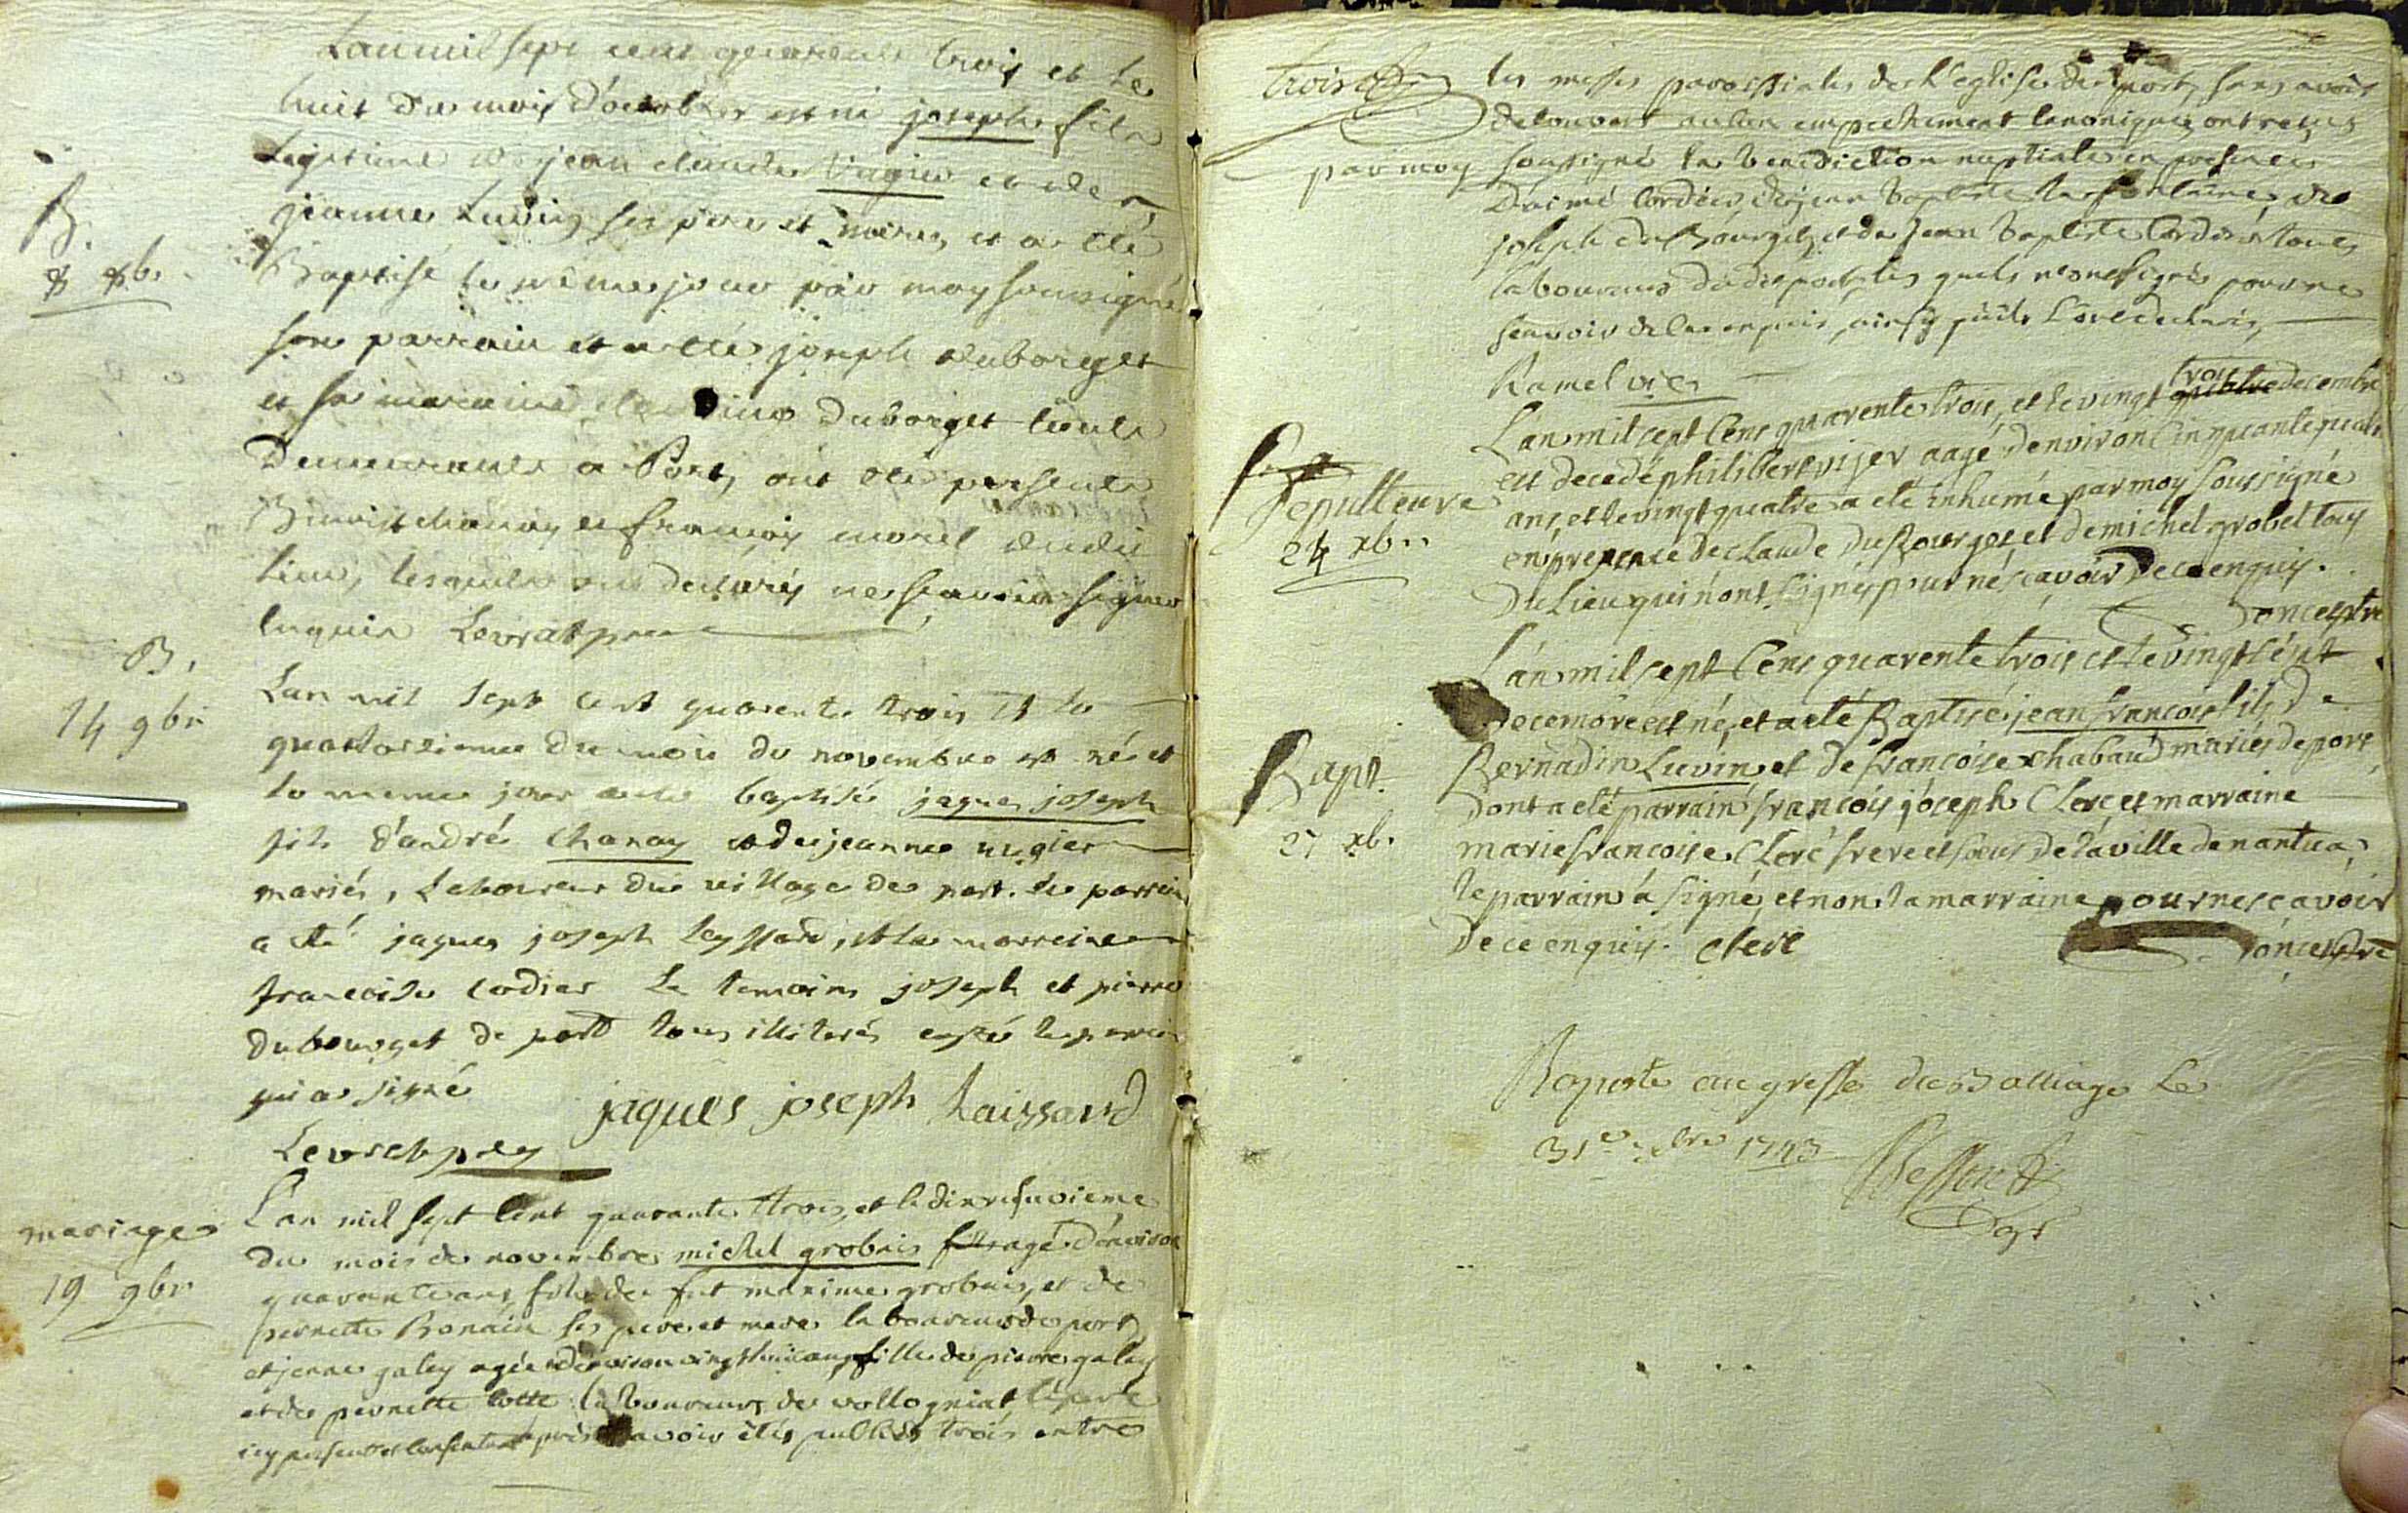 L'an mil sept cent quarante trois et le
huit du mois d'octobre est né joseph fils
legitime de jean claude Vugier et de
jeanne Luvin ses pere et mere, et a été
Baptisé le même jour par moy soussigné
son parrain et a été joseph duborget
et sa maraine duborget touts
Demeurants a Port, ont été presents
Benoist chanay et françois morel dudit
lieu, lesquels ont declarés ne sçavoir signer
Enquis Levrat
B.
8 8b.
B.
14 9br
L'an mil sept cent quarente trois et le
quatorzieme du mois de novembre est né et
le meme jour a été baptisé jaques joseph
fils d'andré Chanay et de jeanne vugier
mariés, Laboureur du village de port. le parrein
a été jaques joseph leyssard, et la marreine
francoise cordier Le temoins joseph et pierre
dubourget de port tous illiterés exepté le parrein
qui a signé
jaques joseph Laissard
Levrat
mariage
19 9br
L'an mil sept cent quarante trois, et le dixneufvieme
du mois de novembre michel grobuis agé d'environ
quarante ans, fils de fut maxime grobuis, et de
pernette Bonain ses pere et mere laboureurs de port
et jenne galey agée d'environ vingt huit ans fille de pierre galey
et de pernette cotte laboureurs de vollogniat le pere
icy present et consentant apres avoir étés publiés trois entre
trois
les messes paroissiales de l'eglise de port, sans avoir
decouvert aucun empechement canonique ont reçus
par moy soussigné la benediction nuptiale en presence
D'aimé Cordier, de jean baptiste de
joseph duBourget, et de Jean baptiste Cordier tous
laboureurs dudit port, les quels n'ont signés pour ne
sçavoir de ce enquis, ainsy qu'ils l'ont declaré,
Ramel vic
Sepulteure
24 xb..
L'an mil sept cens quarente trois, et le vingt trois decembre
est decedé philibert vijer aagé d'environ cinquante quatre
ans, et le vingt quatre a eté inhumé par moy soussigné
en presence de claude duBourget et de michel grobet tous
du Lieu qui n'ont signés pour ne sçavoir de ce enquis.
Doncestre
Bapt.
27 xb.
L'an mil sept cens quarente trois et le vingt sept
Decembre est né, et a eté Baptisé jean françois fils de
Bernadin Luvin et de françoise chabaud mariés de port
dont a eté parrain françois joseph Clerc et marraine
marie françoise Clerc frere et soeur de la ville de nantua,
le parrain a signé, et non la marraine pour ne sçavoir
de ce enquis. clerc
Doncestre
Raporté au greffe du Balliage Le
31e xbre 1743